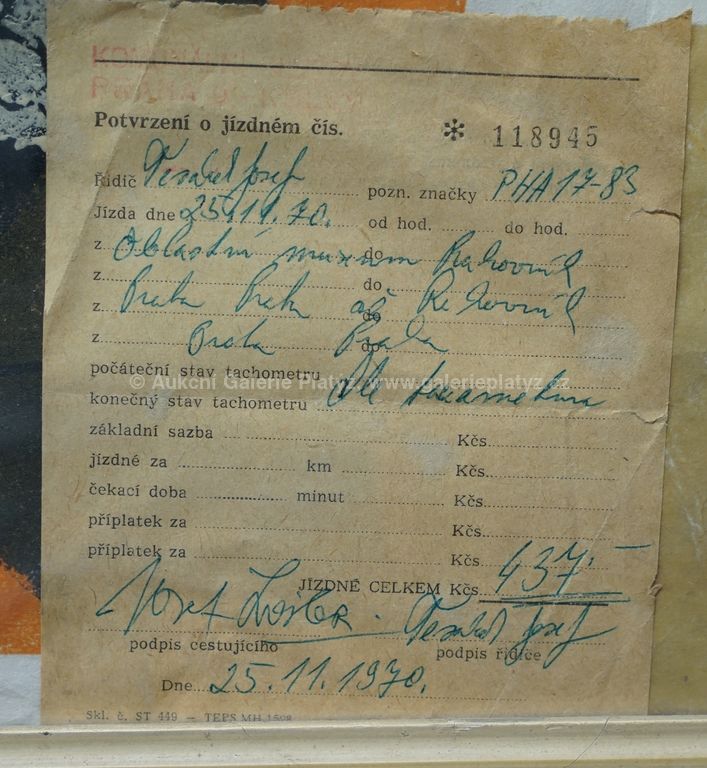 Potvrzení o jízdném čís. * 118945
Řidič Josef pozn. značky PHA 17-83
Jízda dne 25.11.70. od hod. do hod.
z Oblastní museum do Rakovník
z Praha Praha do
z až do Rakovník
z Praha do Praha
počáteční stav tachometru
© Aukční Galerie Platýz, www.galerieplatyz.cz
konečný stav tachometru Dle
základní sazba Kčs
jízdné za km Kčs
čekací doba minut Kčs
příplatek za Kčs
příplatek za Kčs
JÍZDNÉ CELKEM Kčs 437,-
Josef Josef
podpis cestujícího podpis řidiče
Dne 25.11.1970.
Skl. č. ST 449 — TEPS MH